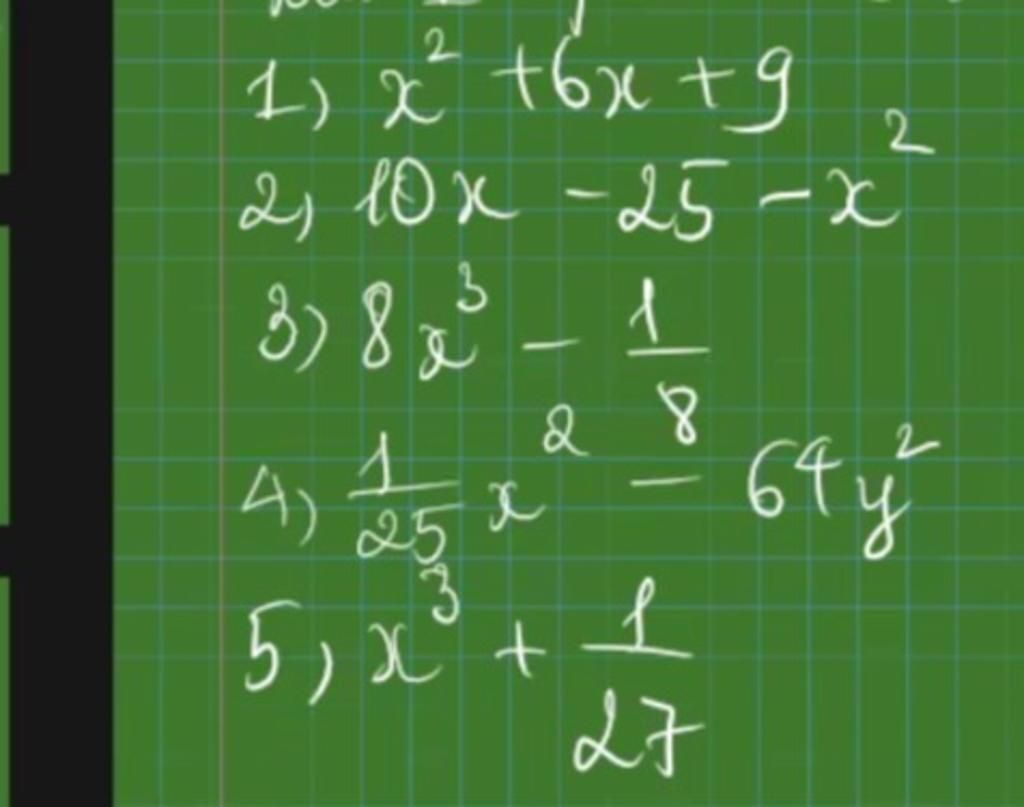 1) x² + 6x + 9
2) 10x - 25 - x²
3) 8x³ - 1/8
4) 1/25 x² - 64y²
5) x³ + 1/27